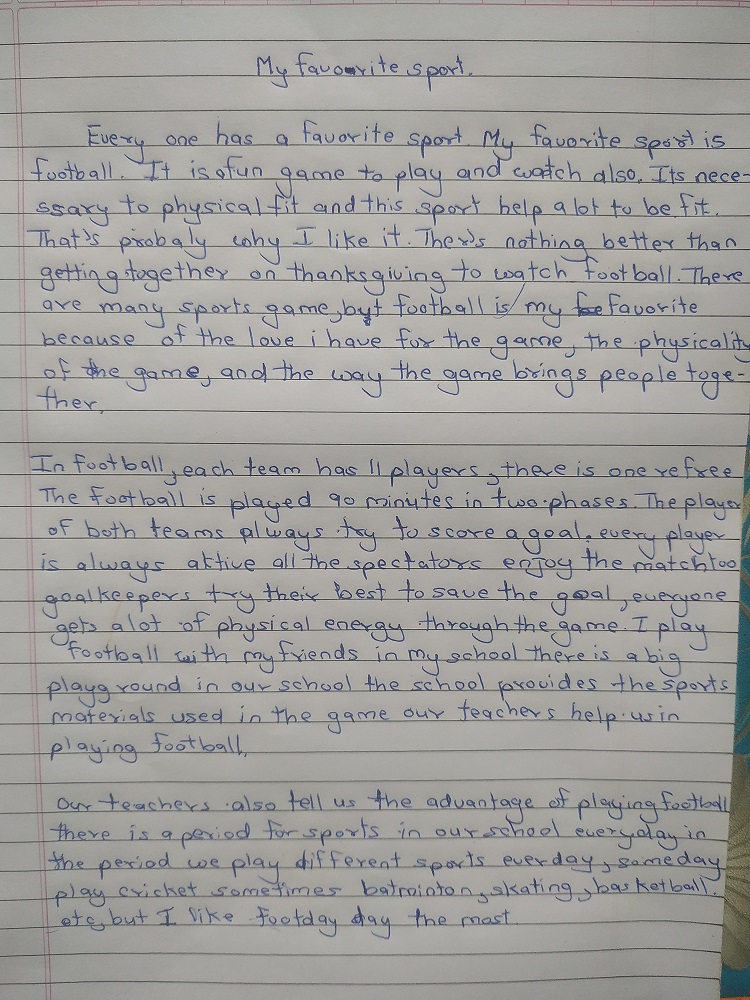 My favourite sport.
Every one has a favorite sport. My favorite sport is
football. It is a fun game to play and watch also. Its nece-
ssary to physical fit and this sport help a lot to be fit.
That's probaly why I like it. There's nothing better than
getting together on thanksgiving to watch football. There
are many sports game, but football is my favorite
because of the love i have for the game, the physicality
of the game, and the way the game brings people toge-
ther.
In football, each team has 11 players, there is one refree
The football is played 90 minutes in two phases. The player
of both teams always try to score a goal. every player
is always aktive all the spectators enjoy the match too
goalkeepers try their best to save the goal, everyone
gets a lot of physical energy through the game. I play
football with my friends in my school there is a big
playground in our school the school provides the sports
materials used in the game our teachers help us in
playing football.
Our teachers also tell us the advantage of playing football
there is a period for sports in our school everyday in
the period we play different sports everday, someday
play cricket sometimes batminton, skating, basketball.
etc, but I like footday day the most.